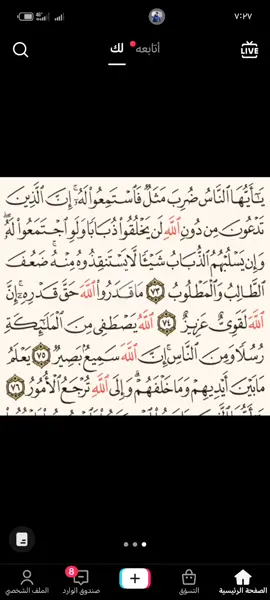 ٧:٢٧
LIVE
أتابعه
لك
يَـٰٓأَيُّهَا ٱلنَّاسُ ضُرِبَ مَثَلٌ فَٱسْتَمِعُوا۟ لَهُۥٓ ۚ إِنَّ ٱلَّذِينَ
تَدْعُونَ مِن دُونِ ٱللَّهِ لَن يَخْلُقُوا۟ ذُبَابًا وَلَوِ ٱجْتَمَعُوا۟ لَهُۥ ۖ
وَإِن يَسْلُبْهُمُ ٱلذُّبَابُ شَيْـًٔا لَّا يَسْتَنقِذُوهُ مِنْهُ ۚ ضَعُفَ
ٱلطَّالِبُ وَٱلْمَطْلُوبُ ٧٣ مَا قَدَرُوا۟ ٱللَّهَ حَقَّ قَدْرِهِۦٓ ۗ إِنَّ
ٱللَّهَ لَقَوِىٌّ عَزِيزٌ ٧٤ ٱللَّهُ يَصْطَفِى مِنَ ٱلْمَلَـٰٓئِكَةِ
رُسُلًا وَمِنَ ٱلنَّاسِ ۚ إِنَّ ٱللَّهَ سَمِيعٌۢ بَصِيرٌ ٧٥ يَعْلَمُ
مَا بَيْنَ أَيْدِيهِمْ وَمَا خَلْفَهُمْ ۗ وَإِلَى ٱللَّهِ تُرْجَعُ ٱلْأُمُورُ ٧٦
الصفحة الرئيسية
التسوّق
8
صندوق الوارد
الملف الشخصي